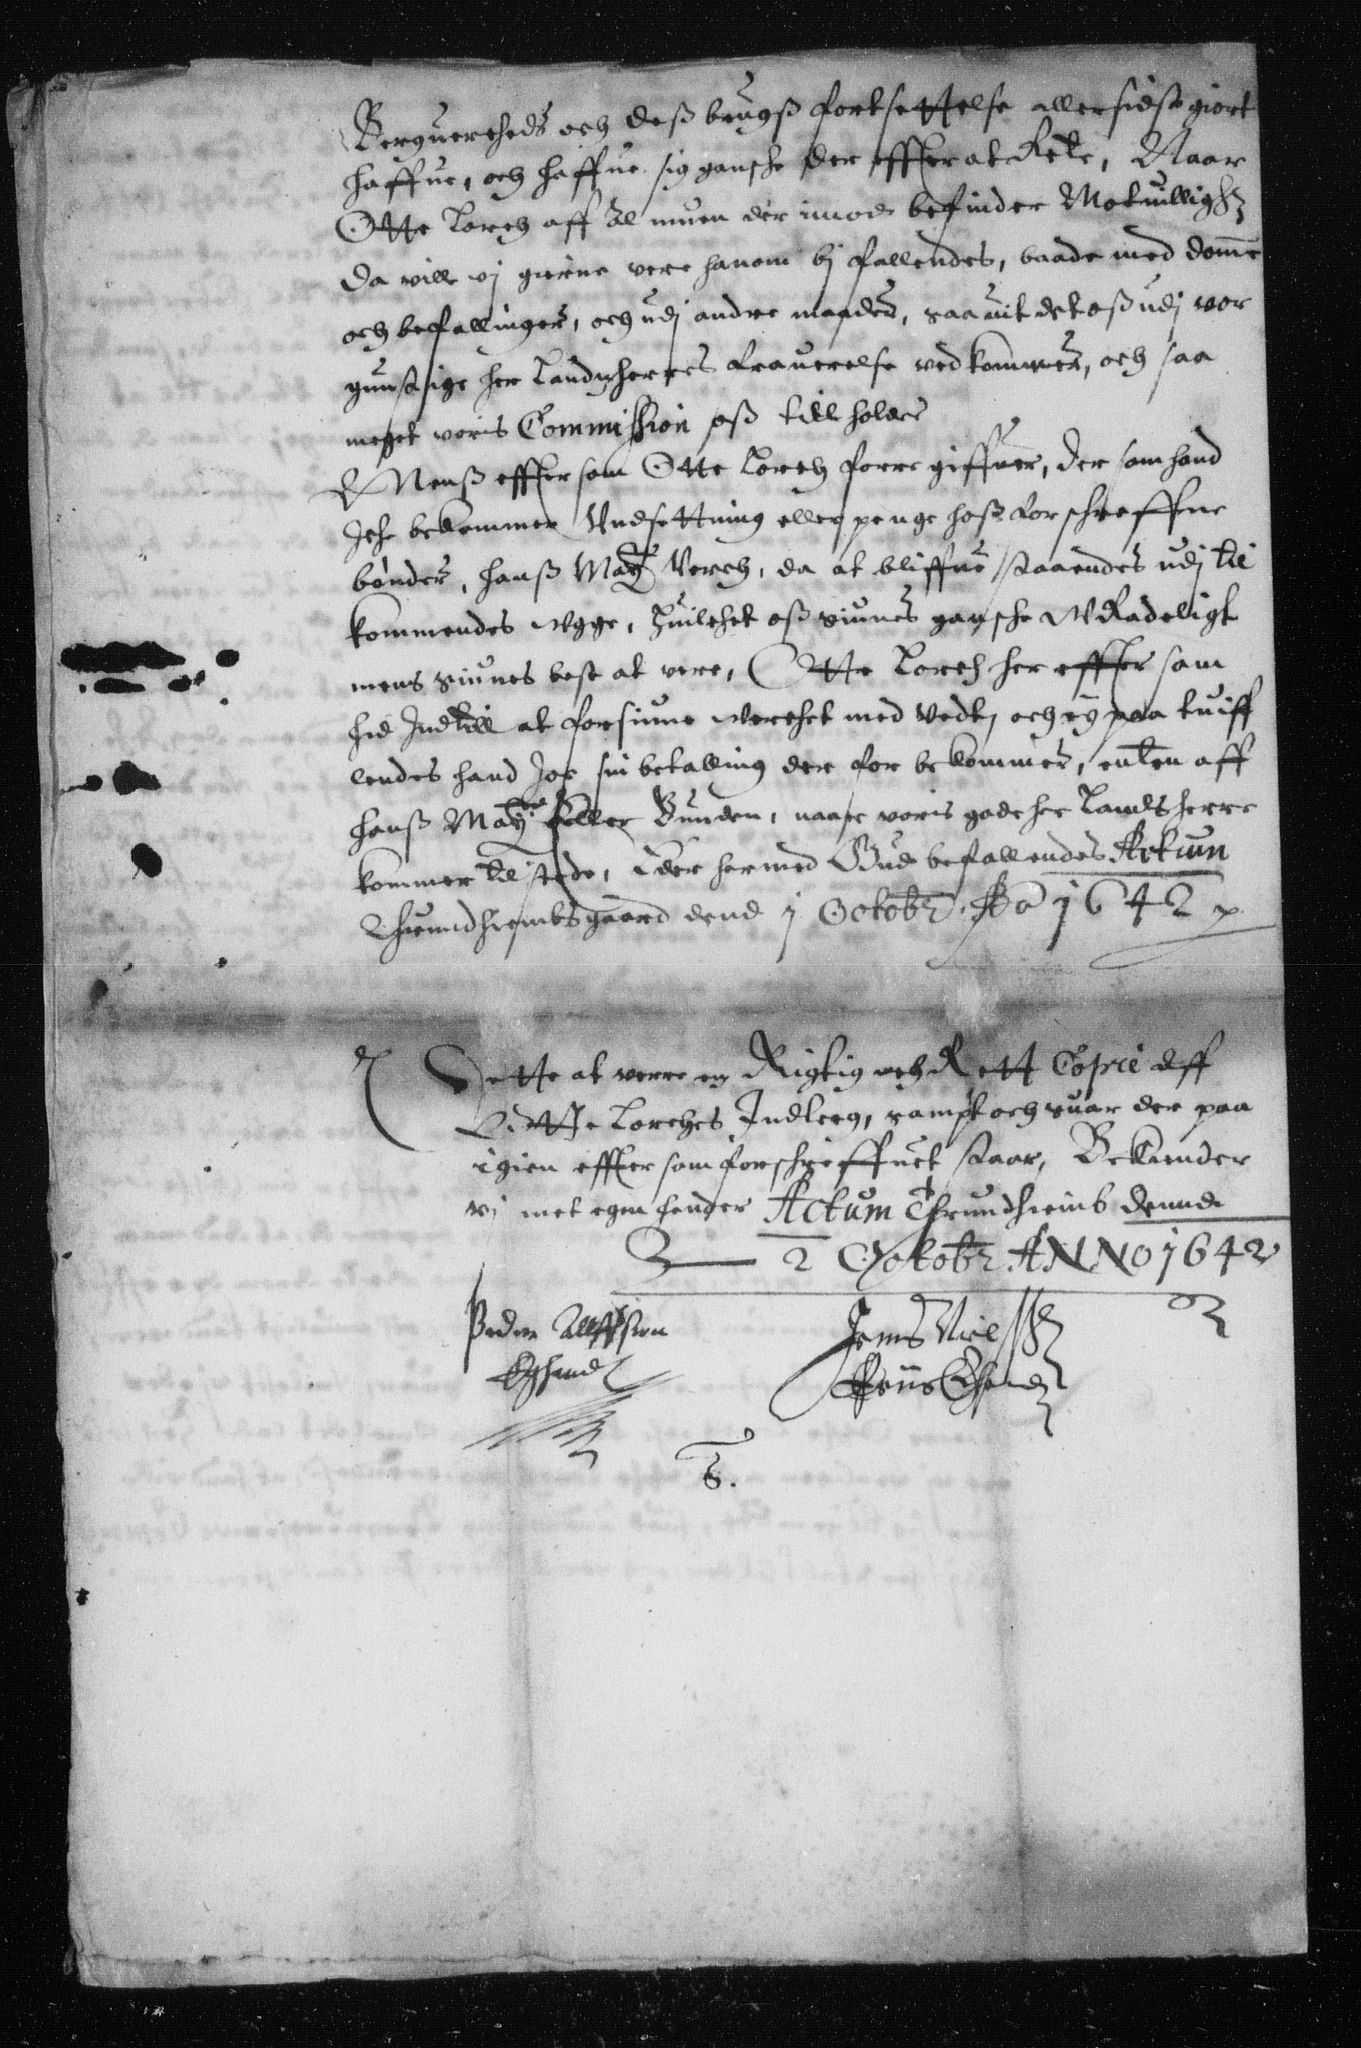 Bergverchеds och deß brugß fortsettelse allersidst giort
haffue, och haffue sig gansche der effter at Rete, Naar
Otte Lorch aff Almuen der imod befinder Motuillighd
da ville vj gierne vere hanom bj fallendes, baade med domme
och befallinger, och udj andre maader, saauit det oß udj vor
gunstige her Landzherres frauerelse ved kommer, och saa
meget voris Commission oß till holder
Menß effter som Otte Lorch forregiffuer, der som hand
Iche bekommer Undsettning eller penge hoß forschreffne
bønder, Hanß May: Verch, da at bliffue staaendes udj til
kommendes Uge, huilchet oß siunes gansche U Radeligt
mens siunes best at vere, Otte Lorch her effter som
hid Indtill at forsiune Verchet med Vedt, och ej paa tuiff
lendes hand Jo sin betalling der for bekommer, enten aff
Hanß May: eller Bunden, naar voris gode her Landsherre
kommer til stede, Eder hermed Gud befallendes Actum
Thrundhiembsgaard dend 1 Octobr: Ao 1642
Dette at verre en Rigtig och Rett Copie aff
Otte Lorches Indleeg, sampt och suar der paa
igien effter som forschreffuet staar, Bekiender
vj met egen hender Actum Thrundhiemb dennd
2 Octobr ANNO 1642
Peder Alffsøn Jens Nielss
Eghand Egenhand